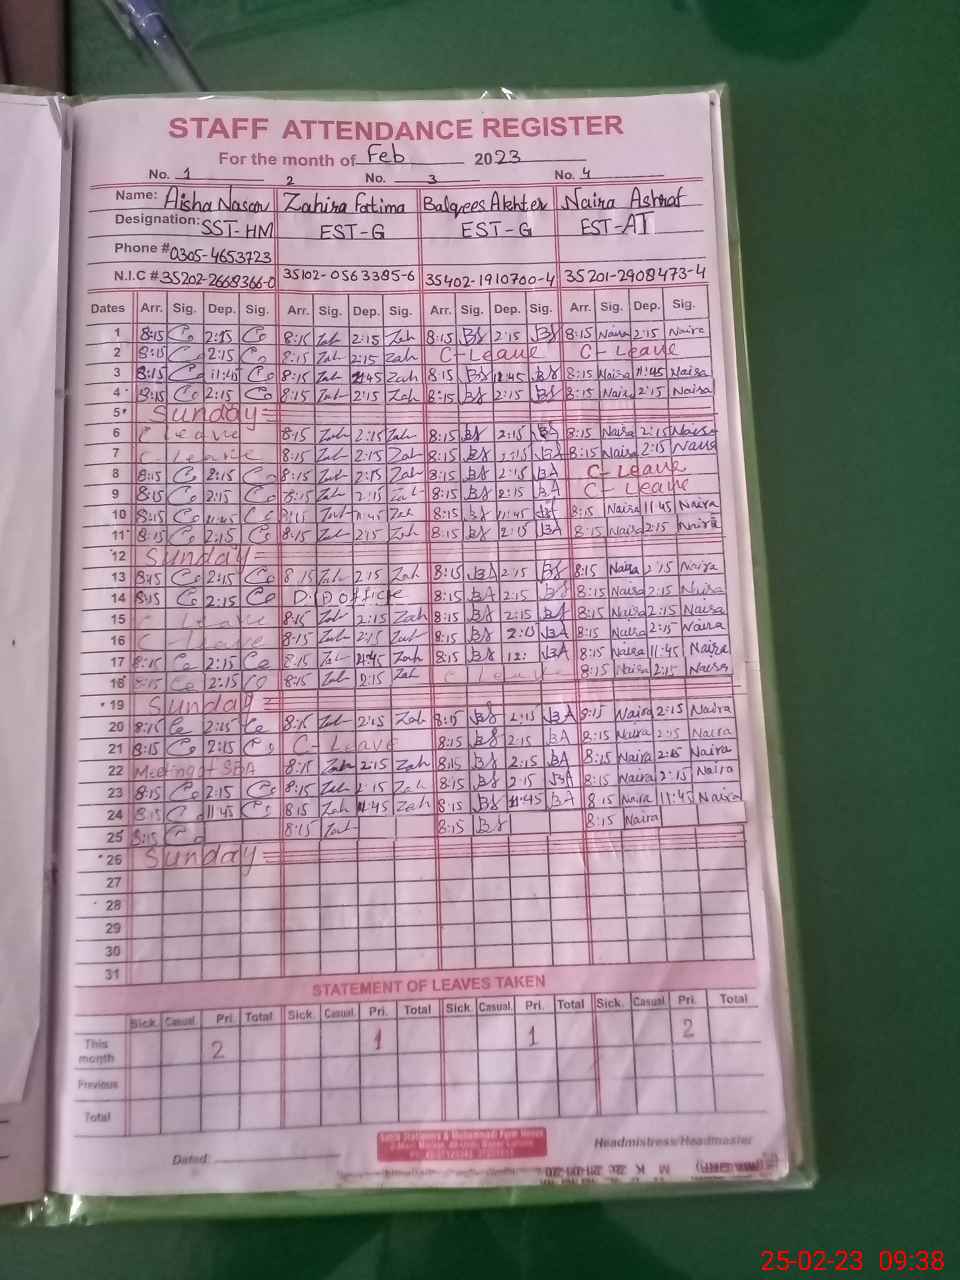 STAFF ATTENDANCE REGISTER
For the month of Feb 2023
No. 1 2 No. 3 No. 4
Name: Aisha Naseer Zahira Fatima Balqees Akhter Naira Ashraf
Designation: SST-HM EST-G EST-G EST-AT
Phone # 0305-4653723
N.I.C # 35202-2668366-0 35102-0563385-6 35402-1910700-4 35201-2908473-4
Dates Arr. Sig. Dep. Sig. Arr. Sig. Dep. Sig. Arr. Sig. Dep. Sig. Arr. Sig. Dep. Sig.
1 8:15 2:15 8:15 Zah 2:15 Zah 8:15 2:15 8:15 Naira 2:15 Naira
2 8:15 2:15 8:15 Zah 2:15 Zah C-Leave C-Leave
3 8:15 11:45 8:15 Zah 11:45 Zah 8:15 11:45 8:15 Naira 11:45 Naira
4 8:15 2:15 8:15 Zah 2:15 Zah 8:15 2:15 8:15 Naira 2:15 Naira
5 Sunday
6 C Leave 8:15 Zah 2:15 Zah 8:15 2:15 8:15 Naira 2:15 Naira
7 C Leave 8:15 Zah 2:15 Zah 8:15 2:15 BA 8:15 Naira 2:15 Naira
8 8:15 2:15 8:15 Zah 2:15 Zah 8:15 2:15 BA C-Leave
9 8:15 2:15 8:15 Zah 2:15 Zah 8:15 2:15 BA C-Leave
10 8:15 11:45 8:15 Zah 11:45 Zah 8:15 11:45 8:15 Naira 11:45 Naira
11 8:15 2:15 8:15 Zah 2:15 Zah 8:15 2:15 BA 8:15 Naira 2:15 Naira
12 Sunday
13 8:15 2:15 8:15 Zah 2:15 Zah 8:15 BA 2:15 8:15 Naira 2:15 Naira
14 8:15 2:15 office 8:15 BA 2:15 8:15 Naira 2:15 Naira
15 C Leave 8:15 Zah 2:15 Zah 8:15 2:15 8:15 Naira 2:15 Naira
16 C-Leave 8:15 Zah 2:15 Zah 8:15 2:15 BA 8:15 Naira 2:15 Naira
17 8:15 2:15 8:15 Zah 11:45 Zah 8:15 12: BA 8:15 Naira 11:45 Naira
18 8:15 2:15 8:15 Zah 2:15 Zah C Leave 8:15 Naira 2:15 Naira
19 Sunday
20 8:15 2:15 8:15 Zah 2:15 Zah 8:15 2:15 BA 8:15 Naira 2:15 Naira
21 8:15 2:15 C-Leave 8:15 2:15 BA 8:15 Naira 2:15 Naira
22 Meeting of 8:15 Zah 2:15 Zah 8:15 2:15 BA 8:15 Naira 2:15 Naira
23 8:15 2:15 8:15 Zah 2:15 Zah 8:15 2:15 BA 8:15 Naira 2:15 Naira
24 8:15 11:45 8:15 Zah 11:45 Zah 8:15 11:45 BA 8:15 Naira 11:45 Naira
25 8:15 8:15 Zah 8:15 8:15 Naira
26 Sunday
27
28
29
30
31
STATEMENT OF LEAVES TAKEN
Sick. Casual. Pri. Total Sick. Casual. Pri. Total Sick. Casual. Pri. Total Sick. Casual. Pri. Total
This month 2 1 1 2
Previous
Total
Dated: Headmistress/Headmaster
25-02-23 09:38